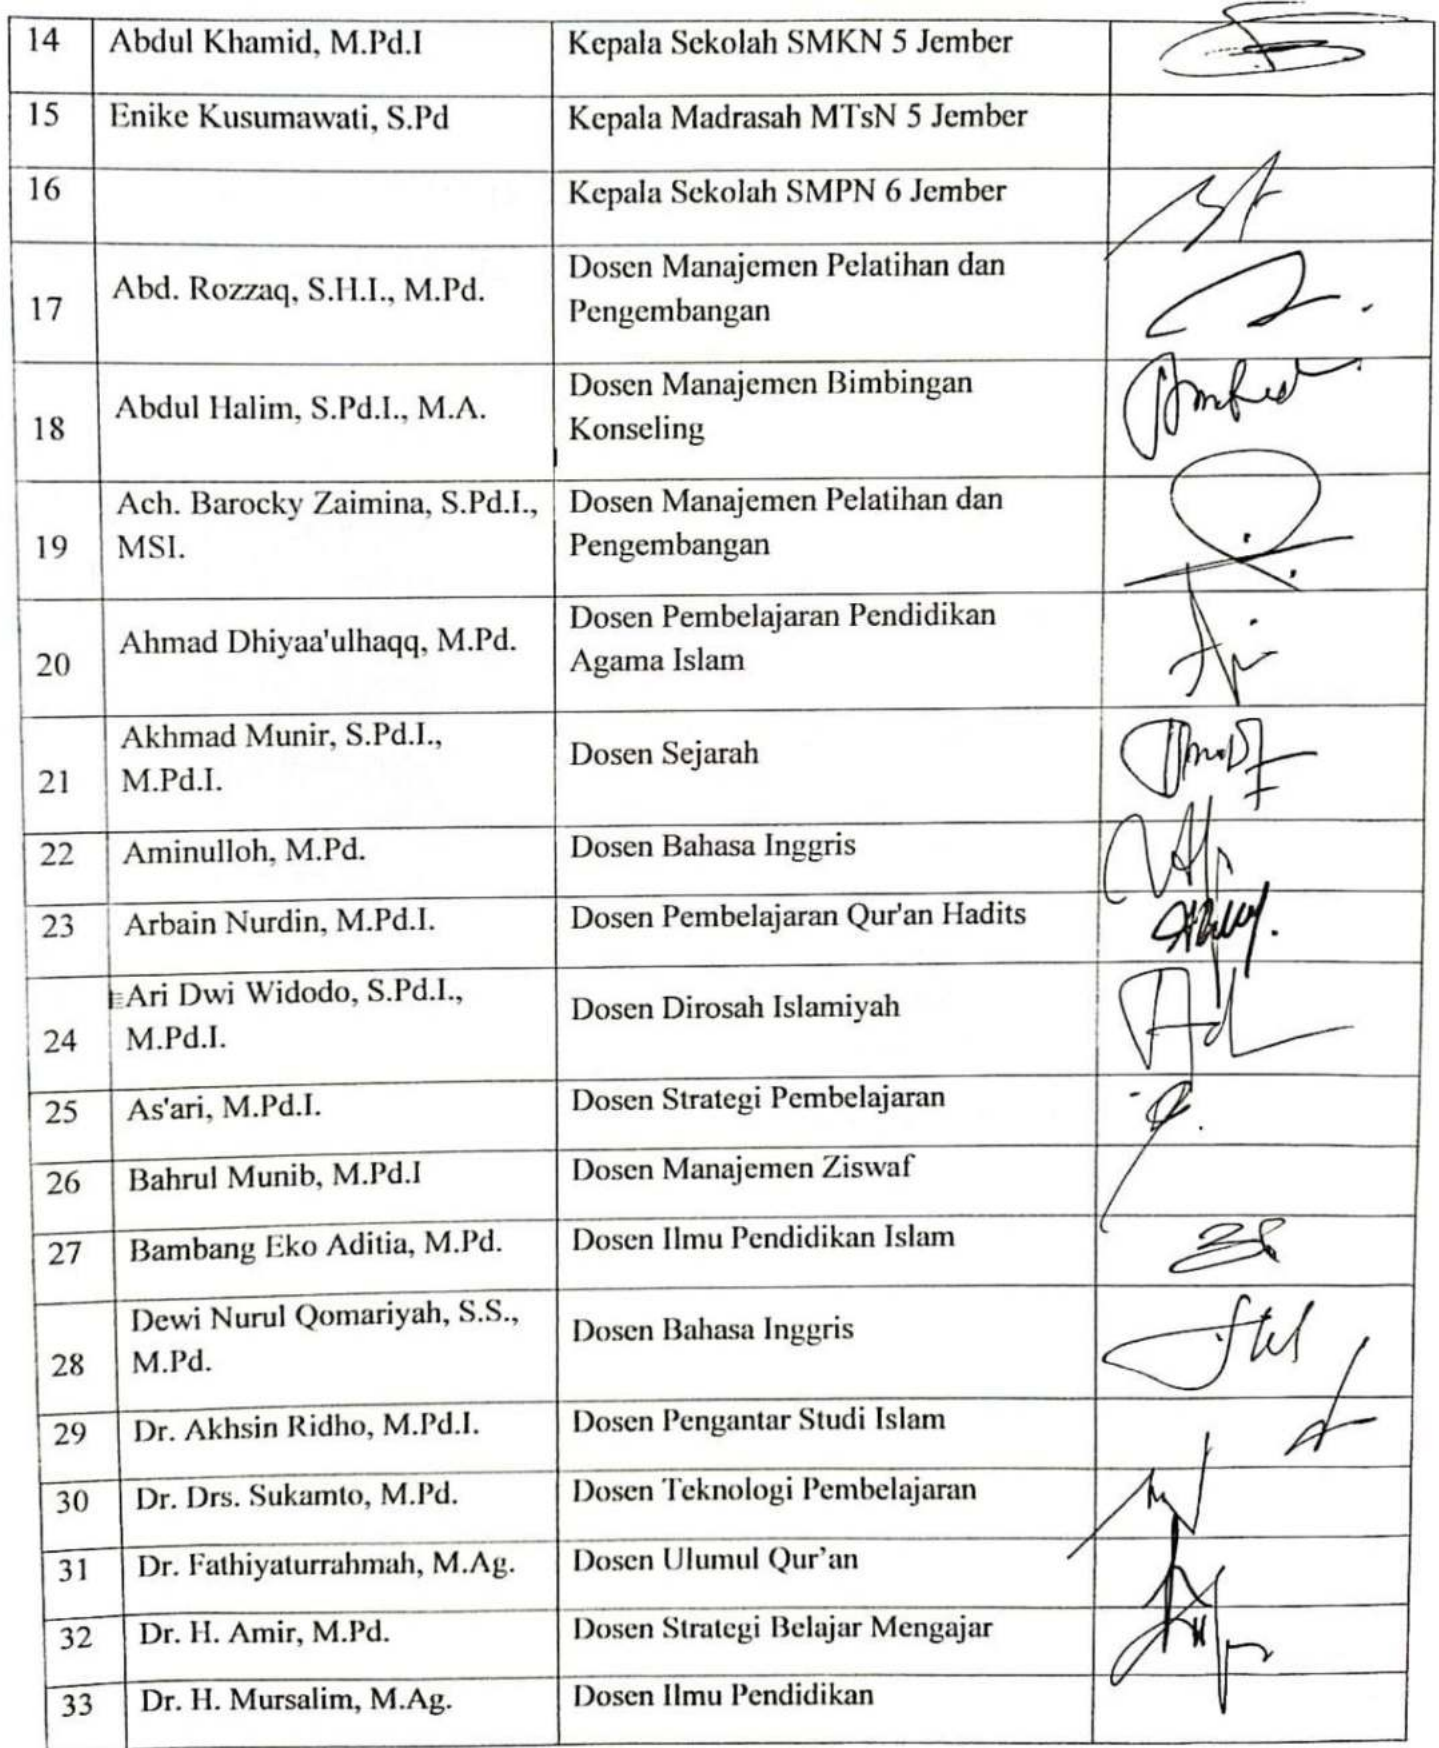 14 Abdul Khamid, M.Pd.I Kepala Sekolah SMKN 5 Jember
15 Enike Kusumawati, S.Pd Kepala Madrasah MTsN 5 Jember
16 Kepala Sekolah SMPN 6 Jember
17 Abd. Rozzaq, S.H.I., M.Pd. Dosen Manajemen Pelatihan dan
Pengembangan
18 Abdul Halim, S.Pd.I., M.A. Dosen Manajemen Bimbingan
Konseling
19 Ach. Barocky Zaimina, S.Pd.I., Dosen Manajemen Pelatihan dan
MSI. Pengembangan
20 Ahmad Dhiyaa'ulhaqq, M.Pd. Dosen Pembelajaran Pendidikan
Agama Islam
21 Akhmad Munir, S.Pd.I., Dosen Sejarah
M.Pd.I.
22 Aminulloh, M.Pd. Dosen Bahasa Inggris
23 Arbain Nurdin, M.Pd.I. Dosen Pembelajaran Qur'an Hadits
24 Ari Dwi Widodo, S.Pd.I., Dosen Dirosah Islamiyah
M.Pd.I.
25 As'ari, M.Pd.I. Dosen Strategi Pembelajaran
26 Bahrul Munib, M.Pd.I Dosen Manajemen Ziswaf
27 Bambang Eko Aditia, M.Pd. Dosen Ilmu Pendidikan Islam
28 Dewi Nurul Qomariyah, S.S., Dosen Bahasa Inggris
M.Pd.
29 Dr. Akhsin Ridho, M.Pd.I. Dosen Pengantar Studi Islam
30 Dr. Drs. Sukamto, M.Pd. Dosen Teknologi Pembelajaran
31 Dr. Fathiyaturrahmah, M.Ag. Dosen Ulumul Qur’an
32 Dr. H. Amir, M.Pd. Dosen Strategi Belajar Mengajar
33 Dr. H. Mursalim, M.Ag. Dosen Ilmu Pendidikan